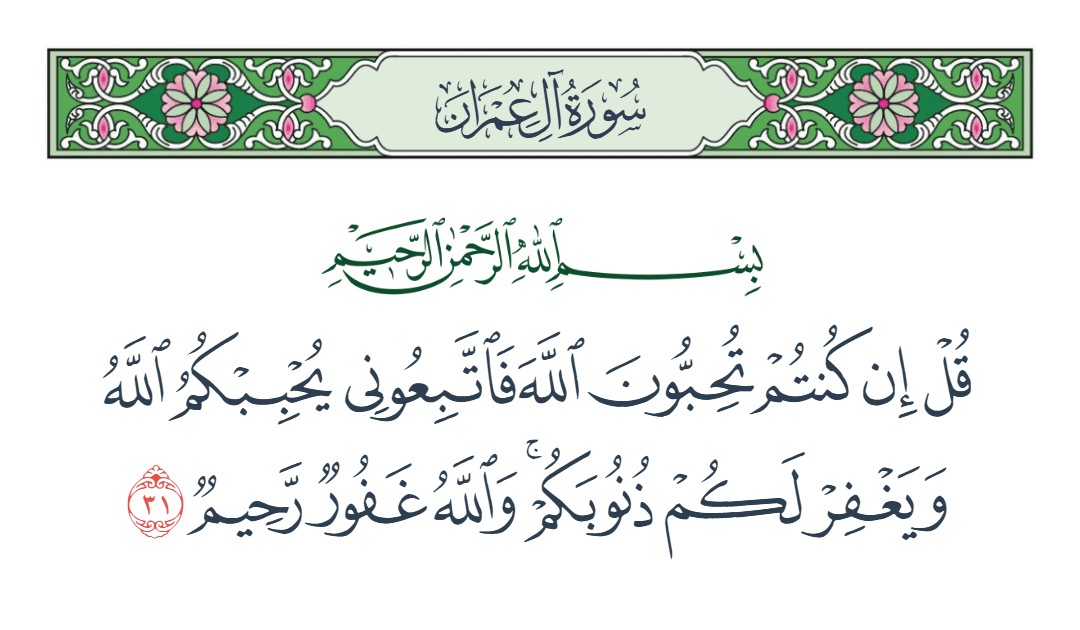 سُورَةُ آلِ عِمْرَانَ
بِسْمِ ٱللَّهِ ٱلرَّحْمَٰنِ ٱلرَّحِيمِ
قُلْ إِن كُنتُمْ تُحِبُّونَ ٱللَّهَ فَٱتَّبِعُونِى يُحْبِبْكُمُ ٱللَّهُ
وَيَغْفِرْ لَكُمْ ذُنُوبَكُمْ ۚ وَٱللَّهُ غَفُورٌ رَّحِيمٌ ٣١